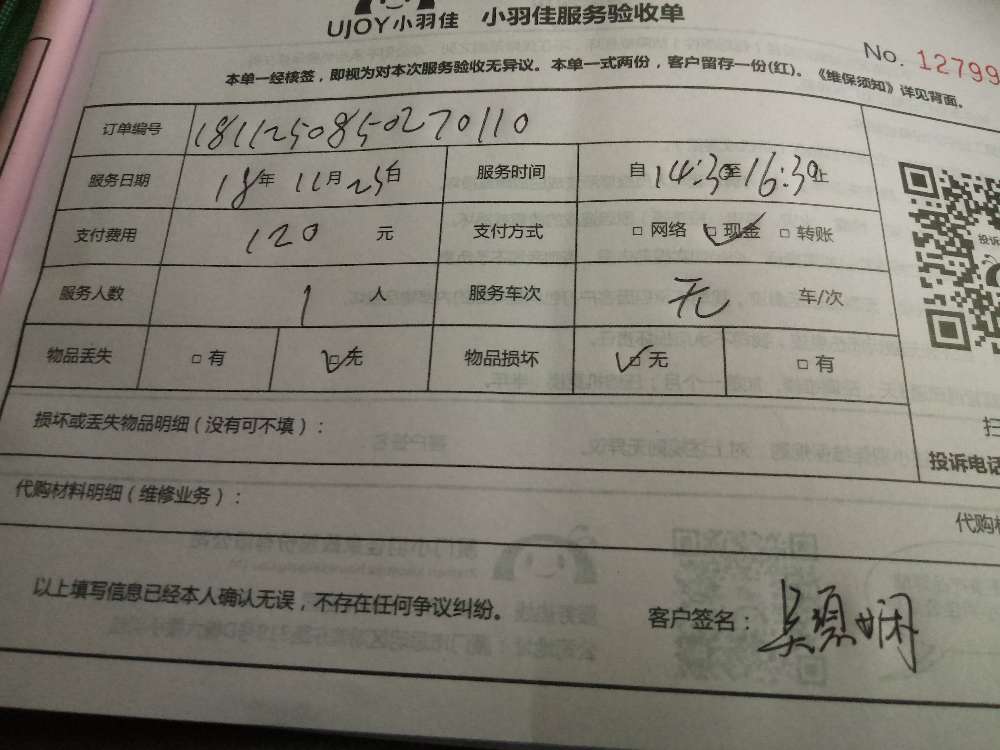 UJOY小羽佳 小羽佳服务验收单
No. 12799
本单一经核签，即视为对本次服务验收无异议。本单一式两份，客户留存一份(红)。《维保须知》详见背面。
订单编号 1811250850270110
服务日期 18年 11月25日 服务时间 自14:30至16:30止
支付费用 120 元 支付方式 □ 网络 □ 现金 □ 转账
投诉
服务人数 1 人 服务车次 无 车/次
物品丢失 □ 有 □ 无 物品损坏 □ 无 □ 有
损坏或丢失物品明细（没有可不填）：
扫
投诉电话
代购材料明细（维修业务）：
代购材
以上填写信息已经本人确认无误，不存在任何争议纠纷。 客户签名：